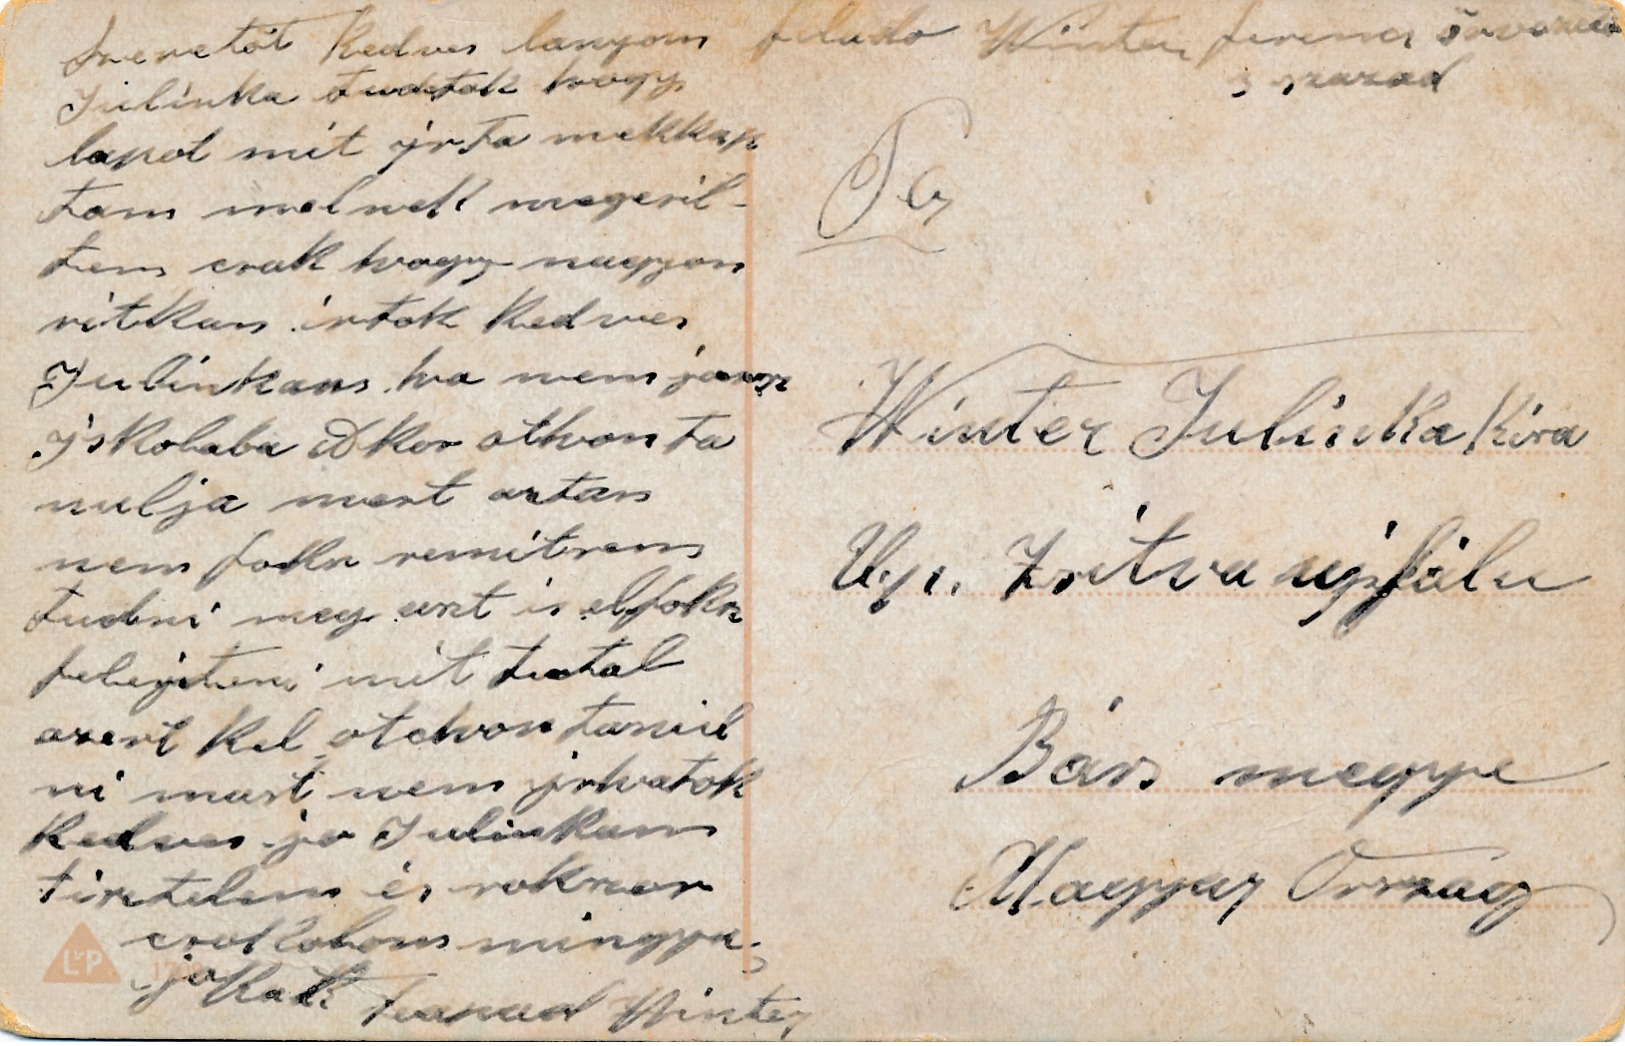 Szeretöt kedves lanyom
Julinka tudatok hogy
lapot mit irta mekkap
tam melnek megeril-
tem csak hogy nagyon
ritkan irtok kedves
Julinkam ha nem jar
Jskolaba Akor othon ta
nulja mert aztan
nem fokn semitsem
tudni meg azt is elfokn
felejteni mit tutal
azert kel otohon tanul
ni mast nem irhatok
kedves jo Julinkam
tisztelem és sokszor
csokolom mingya-
jokat Winter
felado Winter ferenc
3 szazad
Winter Julinka Kira
Up. Zsitva ujfalu
Bárs megye
Magyar Ország
LP